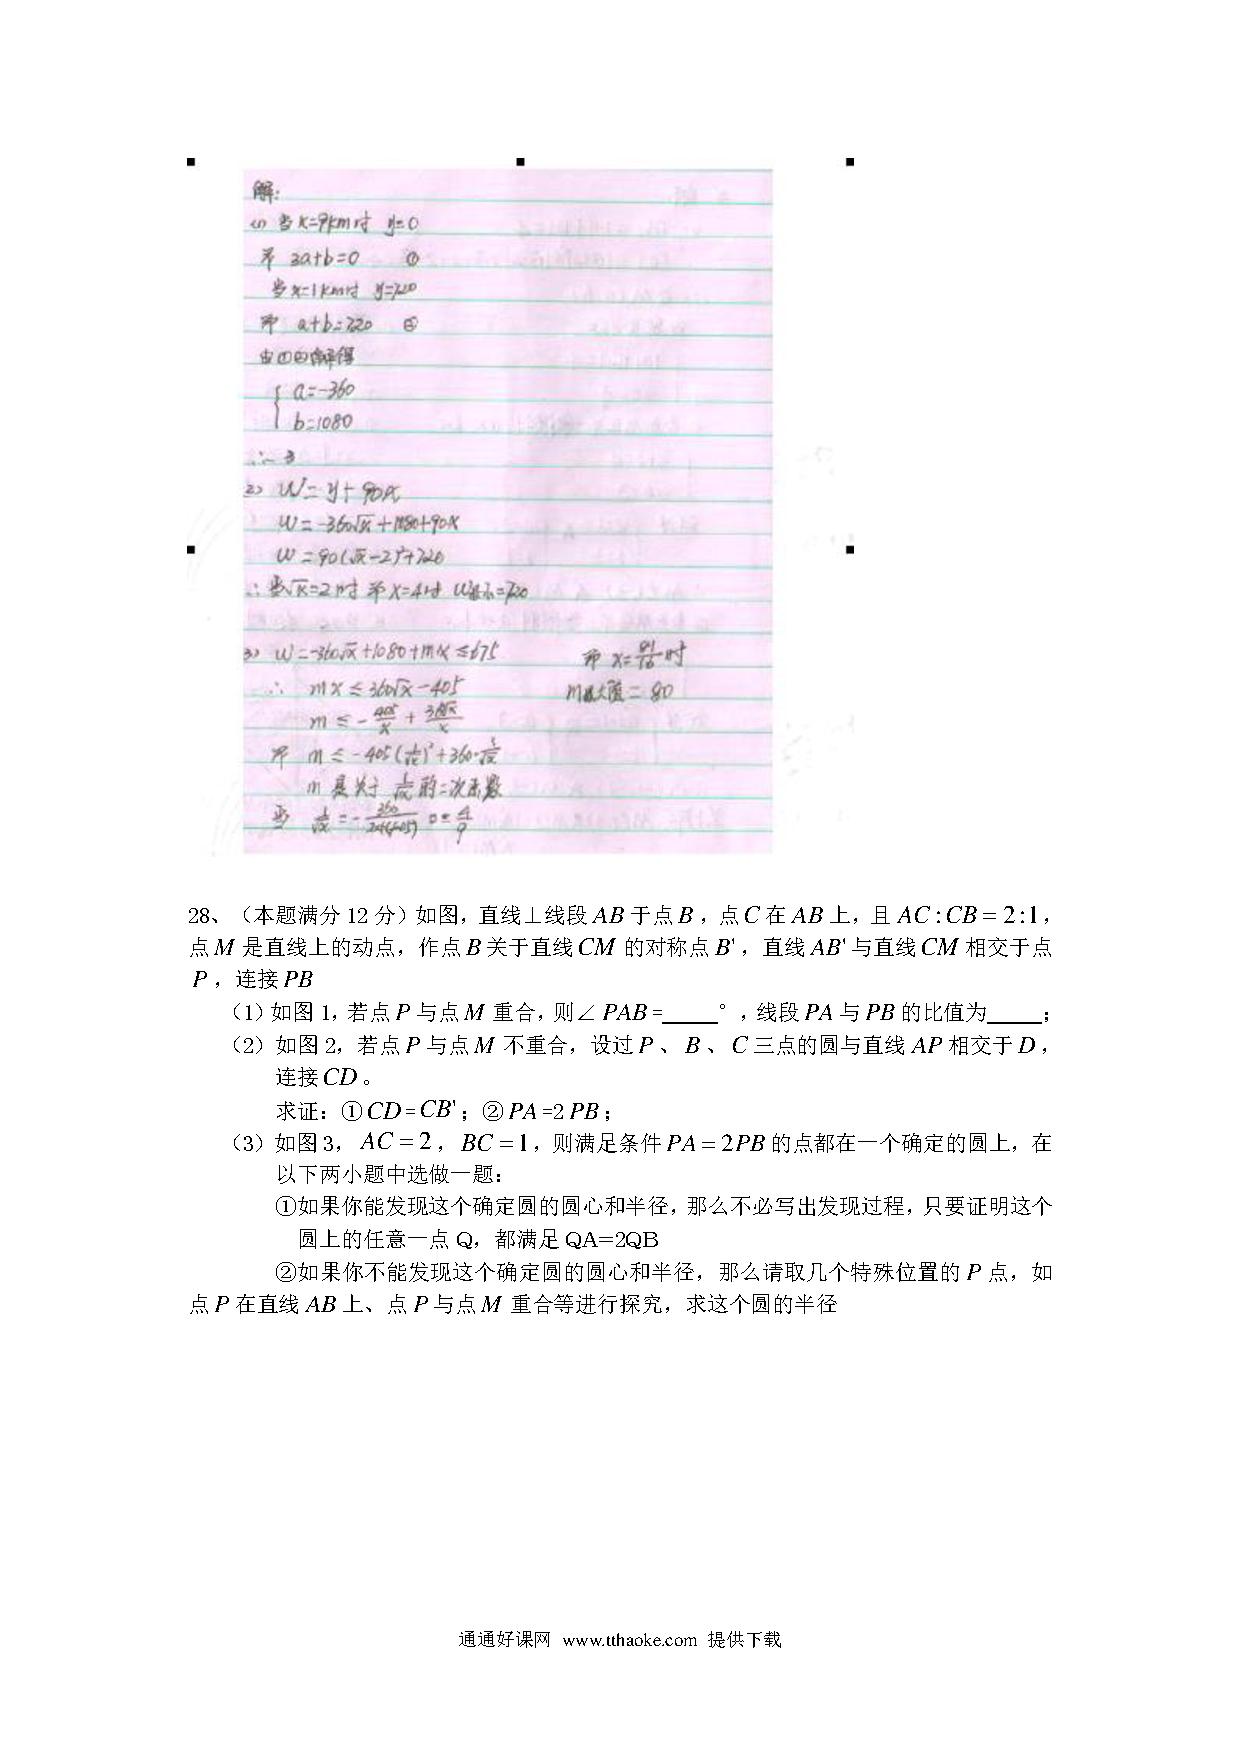 解:
(1) 当x=9km时 y=0
即 3a+b=0 ①
当x=1km时 y=720
即 a+b=720 ②
由①②解得
a=-360
b=1080
2) W=y+90x
W=-360√x+1080+90x
W=90(√x-2)²+720
∴当√x=2时 即x=4时 W最小=720
3) W=-360√x+1080+mx≤675 即 x=81/16时
∴ mx≤360√x-405 m最大值=80
m≤-405/x+360√x/x
即 m≤-405(1/√x)²+360·1/√x
m是关于 1/√x 的二次函数
28、（本题满分 12 分）如图，直线⊥线段 AB 于点 B，点 C 在 AB 上，且 AC:CB=2:1，
点 M 是直线上的动点，作点 B 关于直线 CM 的对称点 B'，直线 AB' 与直线 CM 相交于点
P，连接 PB
（1）如图 1，若点 P 与点 M 重合，则∠ PAB=_____°，线段 PA 与 PB 的比值为_____；
（2）如图 2，若点 P 与点 M 不重合，设过 P、B、C 三点的圆与直线 AP 相交于 D，
连接 CD。
求证：① CD=CB'；② PA=2PB；
（3）如图 3，AC=2，BC=1，则满足条件 PA=2PB 的点都在一个确定的圆上，在
以下两小题中选做一题：
①如果你能发现这个确定圆的圆心和半径，那么不必写出发现过程，只要证明这个
圆上的任意一点 Q，都满足 QA=2QB
②如果你不能发现这个确定圆的圆心和半径，那么请取几个特殊位置的 P 点，如
点 P 在直线 AB 上、点 P 与点 M 重合等进行探究，求这个圆的半径
通通好课网 www.tthaoke.com 提供下载